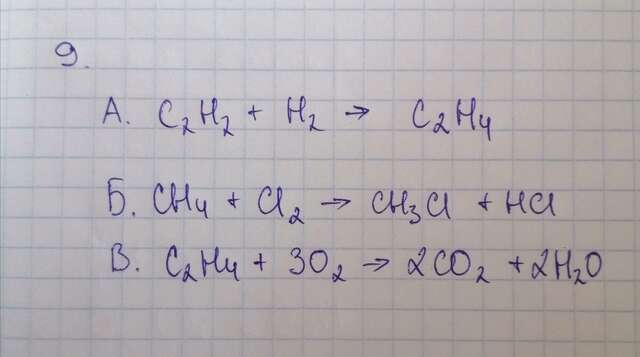 9.
А. C₂H₂ + H₂ → C₂H₄
Б. CH₄ + Cl₂ → CH₃Cl + HCl
В. C₂H₄ + 3O₂ → 2CO₂ + 2H₂O